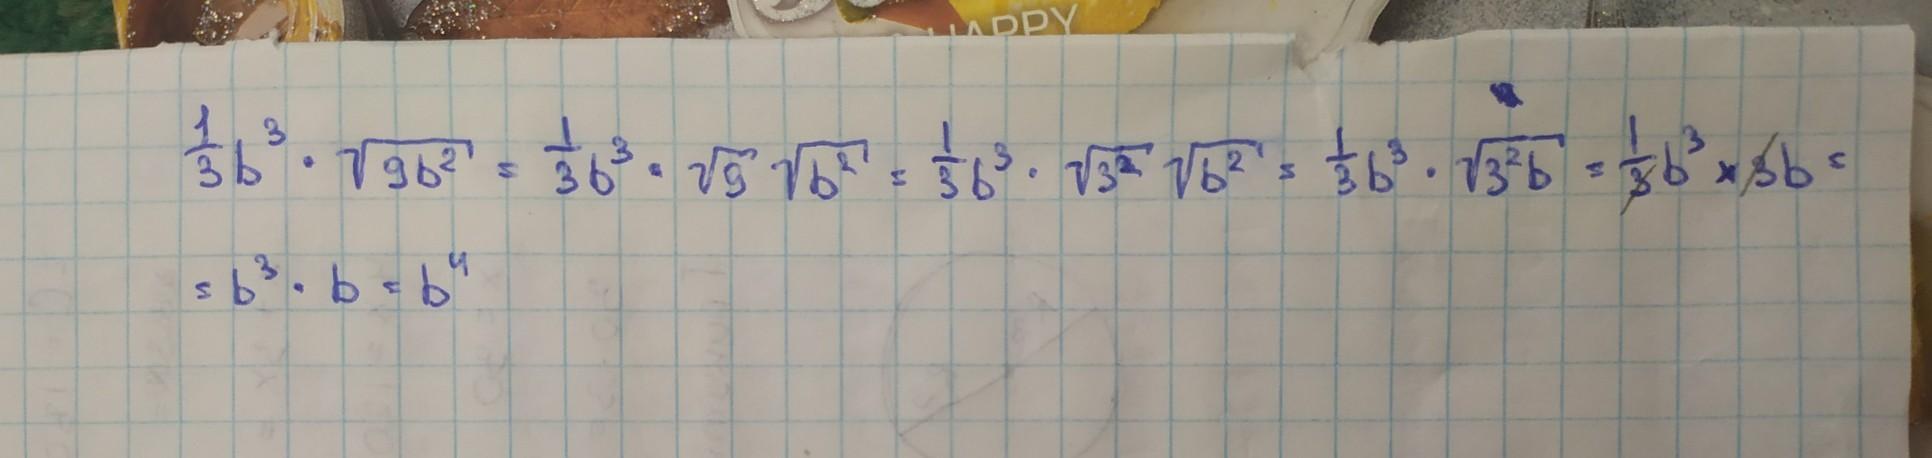 HAPPY
1/3 b³ · √(9b²) = 1/3 b³ · √9 √(b²) = 1/3 b³ · √(3²) √(b²) = 1/3 b³ · √(3²b) = 1/3 b³ × 3b =
= b³ · b = b⁴